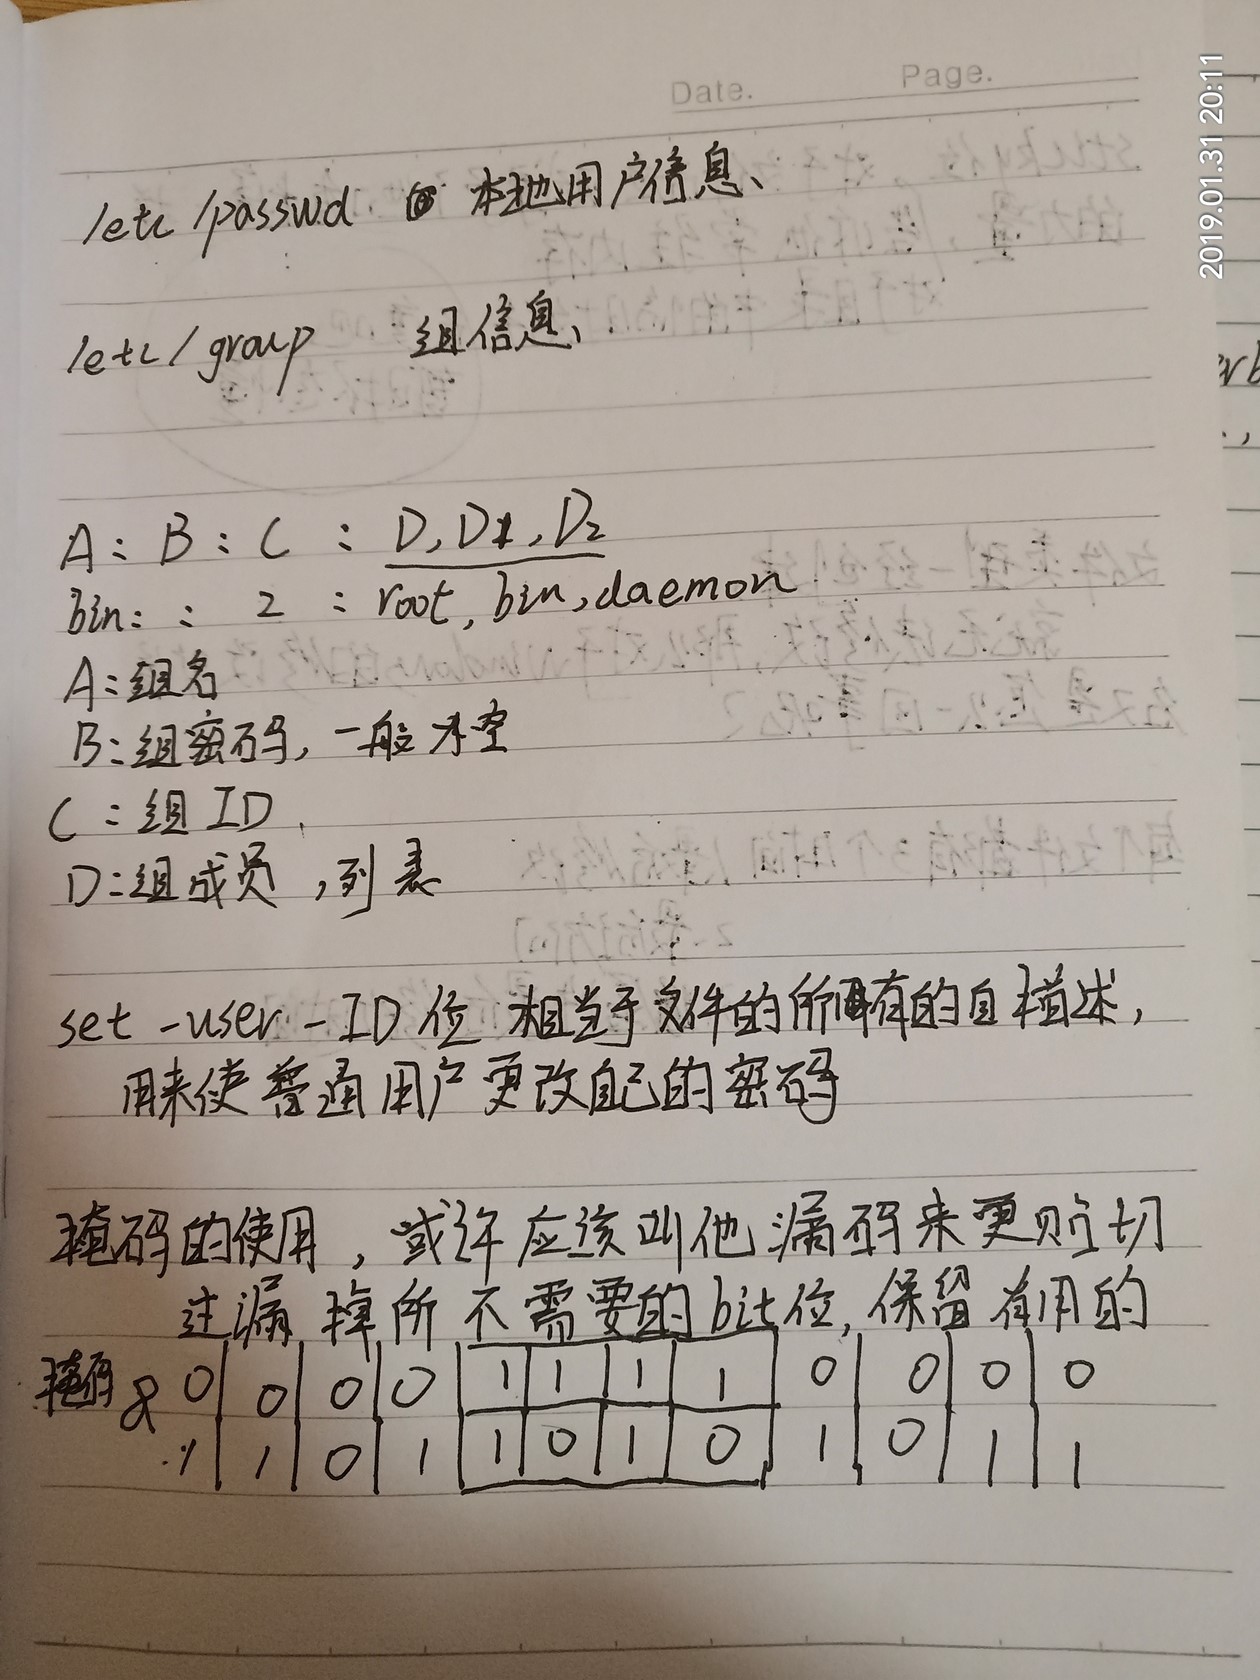 Date. Page.
2019.01.31 20:11
/etc/passwd 本地用户信息、
/etc/group 组信息、
A: B: C : D,D1,D2
bin: : 2 : root, bin,daemon
A:组名
B:组密码,一般为空
C:组ID.
D:组成员,列表
set-user-ID位 相当于文件的所有的自描述,
用来使普通用户更改自己的密码
掩码的使用,或许应该叫他漏码来更贴切
过漏掉所不需要的bit位,保留有用的
掩码 & 0 0 0 0 1 1 1 1 0 0 0 0
1 1 0 1 1 0 1 0 1 0 1 1